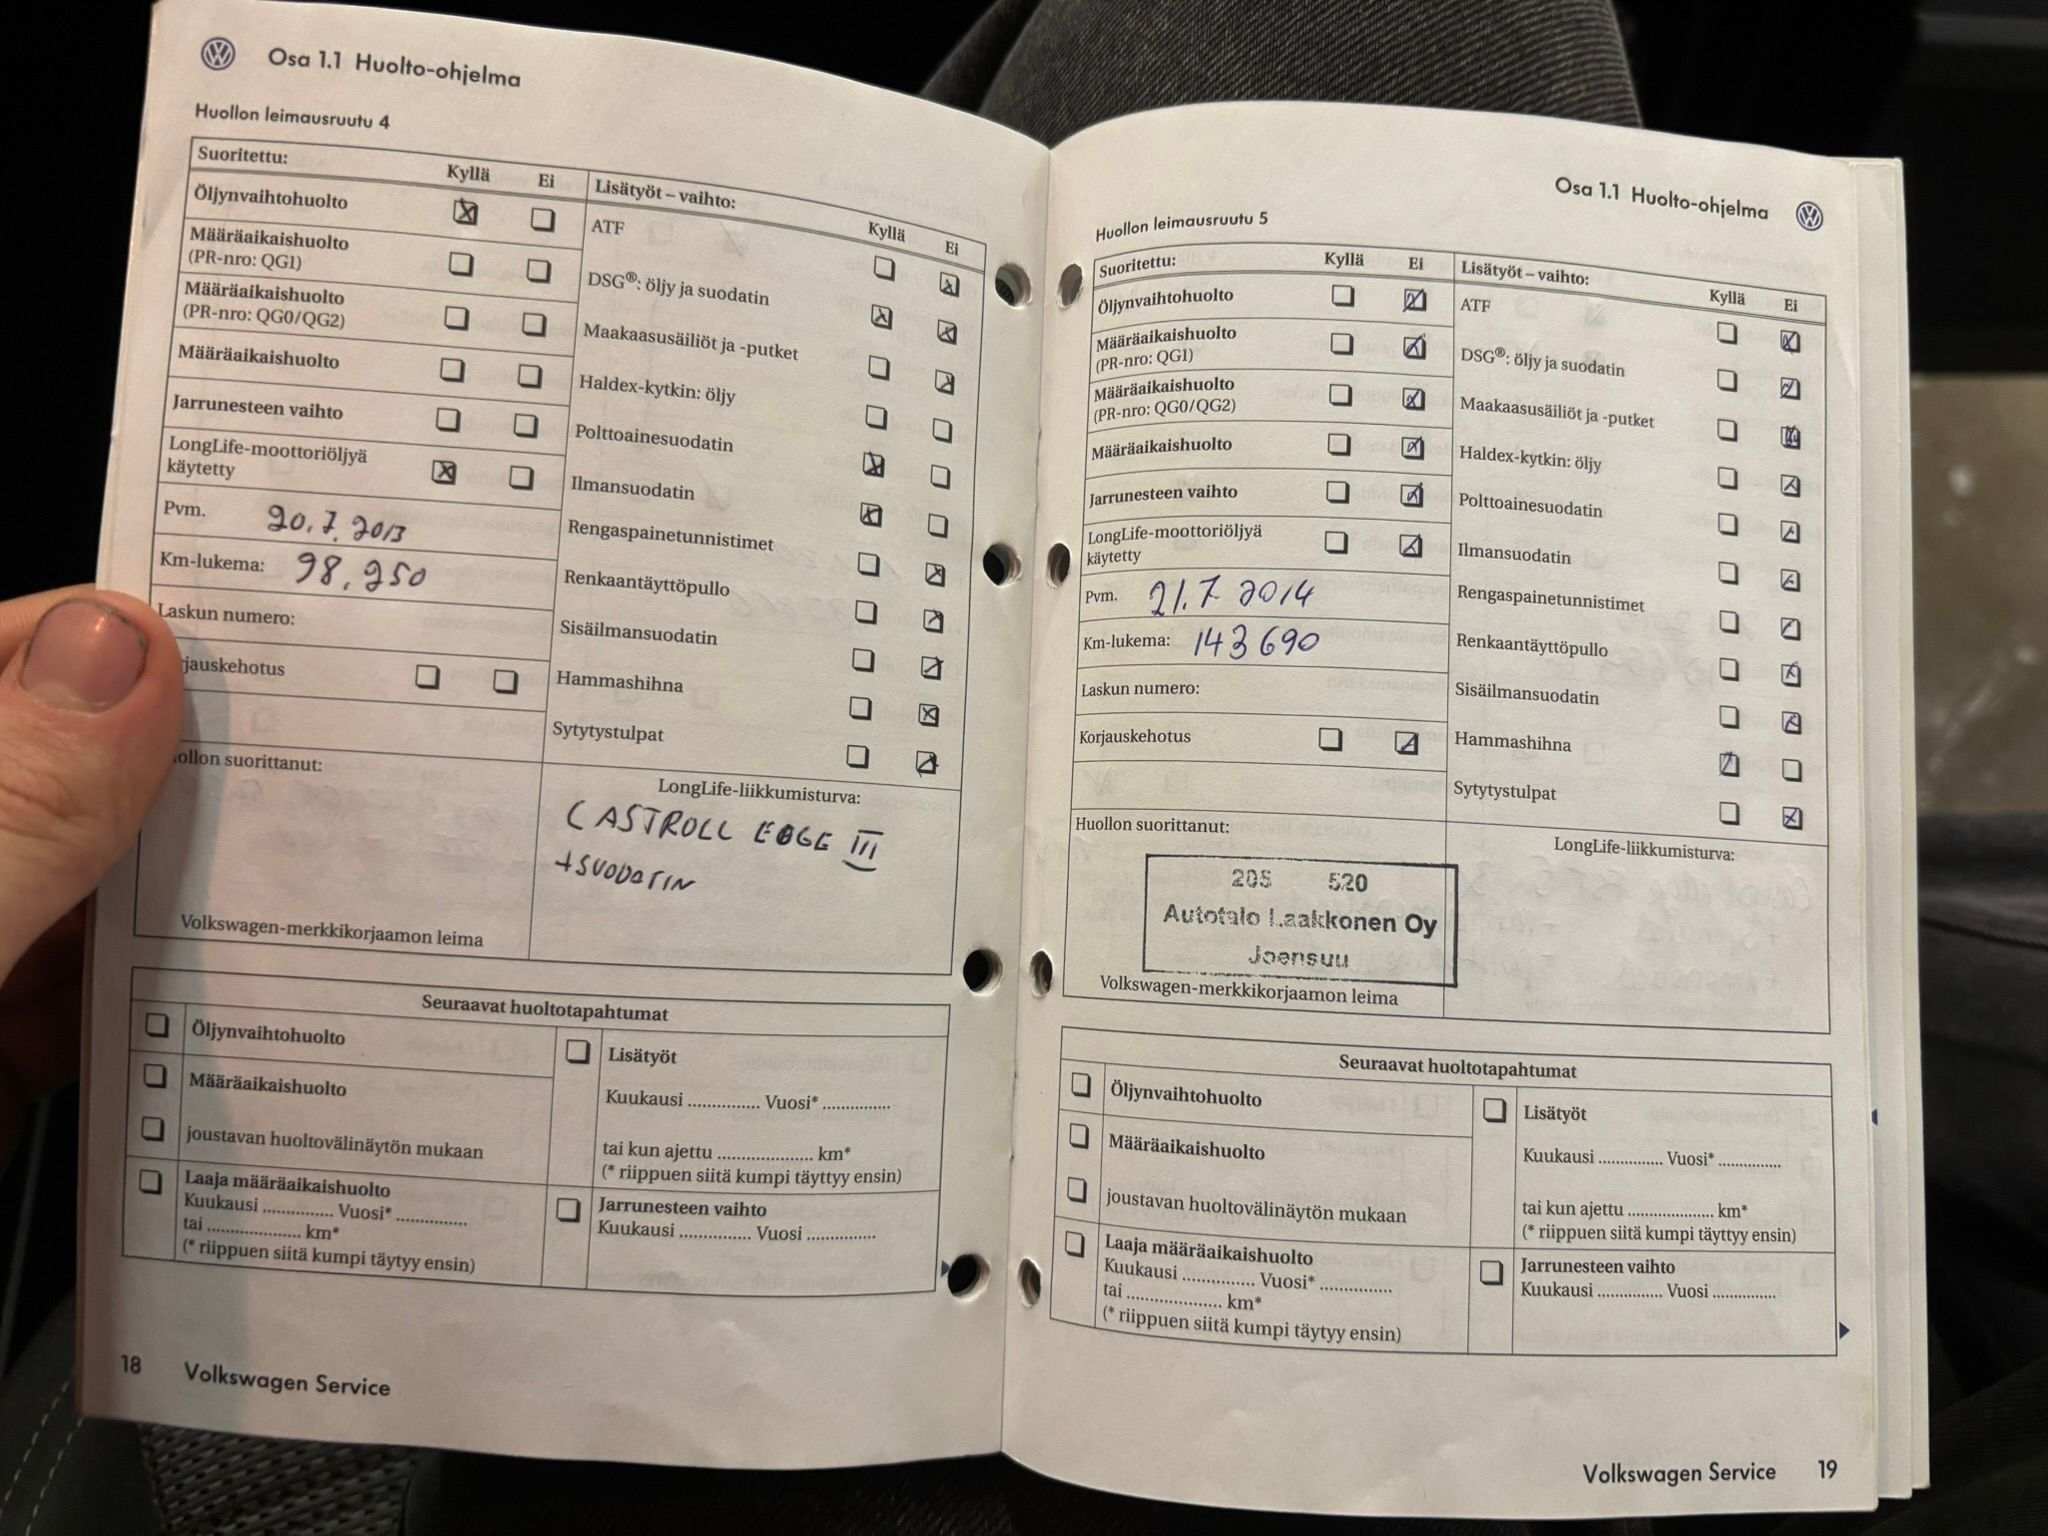 Osa 1.1 Huolto-ohjelma
Huollon leimausruutu 4
Suoritettu:
Kyllä Ei
Öljynvaihtohuolto
Määräaikaishuolto
(PR-nro: QG1)
Määräaikaishuolto
(PR-nro: QG0/QG2)
Määräaikaishuolto
Jarrunesteen vaihto
LongLife-moottoriöljyä
käytetty
Pvm. 20.7.2013
Km-lukema: 98.250
Laskun numero:
rjauskehotus
ollon suorittanut:
Volkswagen-merkkikorjaamon leima
Lisätyöt – vaihto:
Kyllä Ei
ATF
DSG®: öljy ja suodatin
Maakaasusäiliöt ja -putket
Haldex-kytkin: öljy
Polttoainesuodatin
Ilmansuodatin
Rengaspainetunnistimet
Renkaantäyttöpullo
Sisäilmansuodatin
Hammashihna
Sytytystulpat
LongLife-liikkumisturva:
CASTROLL EDGE III
+SUODATIN
Seuraavat huoltotapahtumat
Öljynvaihtohuolto
Määräaikaishuolto
joustavan huoltovälinäytön mukaan
Laaja määräaikaishuolto
Kuukausi .............. Vuosi* ..............
tai .................... km*
(* riippuen siitä kumpi täytyy ensin)
Lisätyöt
Kuukausi .............. Vuosi* .............
tai kun ajettu .................... km*
(* riippuen siitä kumpi täyttyy ensin)
Jarrunesteen vaihto
Kuukausi .............. Vuosi .............
18 Volkswagen Service
Osa 1.1 Huolto-ohjelma
Huollon leimausruutu 5
Suoritettu:
Kyllä Ei
Öljynvaihtohuolto
Määräaikaishuolto
(PR-nro: QG1)
Määräaikaishuolto
(PR-nro: QG0/QG2)
Määräaikaishuolto
Jarrunesteen vaihto
LongLife-moottoriöljyä
käytetty
Pvm. 21.7 2014
Km-lukema: 143 690
Laskun numero:
Korjauskehotus
Huollon suorittanut:
205 520
Autotalo Laakkonen Oy
Joensuu
Volkswagen-merkkikorjaamon leima
Lisätyöt – vaihto:
Kyllä Ei
ATF
DSG®: öljy ja suodatin
Maakaasusäiliöt ja -putket
Haldex-kytkin: öljy
Polttoainesuodatin
Ilmansuodatin
Rengaspainetunnistimet
Renkaantäyttöpullo
Sisäilmansuodatin
Hammashihna
Sytytystulpat
LongLife-liikkumisturva:
Seuraavat huoltotapahtumat
Öljynvaihtohuolto
Määräaikaishuolto
joustavan huoltovälinäytön mukaan
Laaja määräaikaishuolto
Kuukausi .............. Vuosi* ..............
tai .................... km*
(* riippuen siitä kumpi täytyy ensin)
Lisätyöt
Kuukausi ............. Vuosi* .............
tai kun ajettu .................... km*
(* riippuen siitä kumpi täyttyy ensin)
Jarrunesteen vaihto
Kuukausi ............. Vuosi .............
Volkswagen Service 19